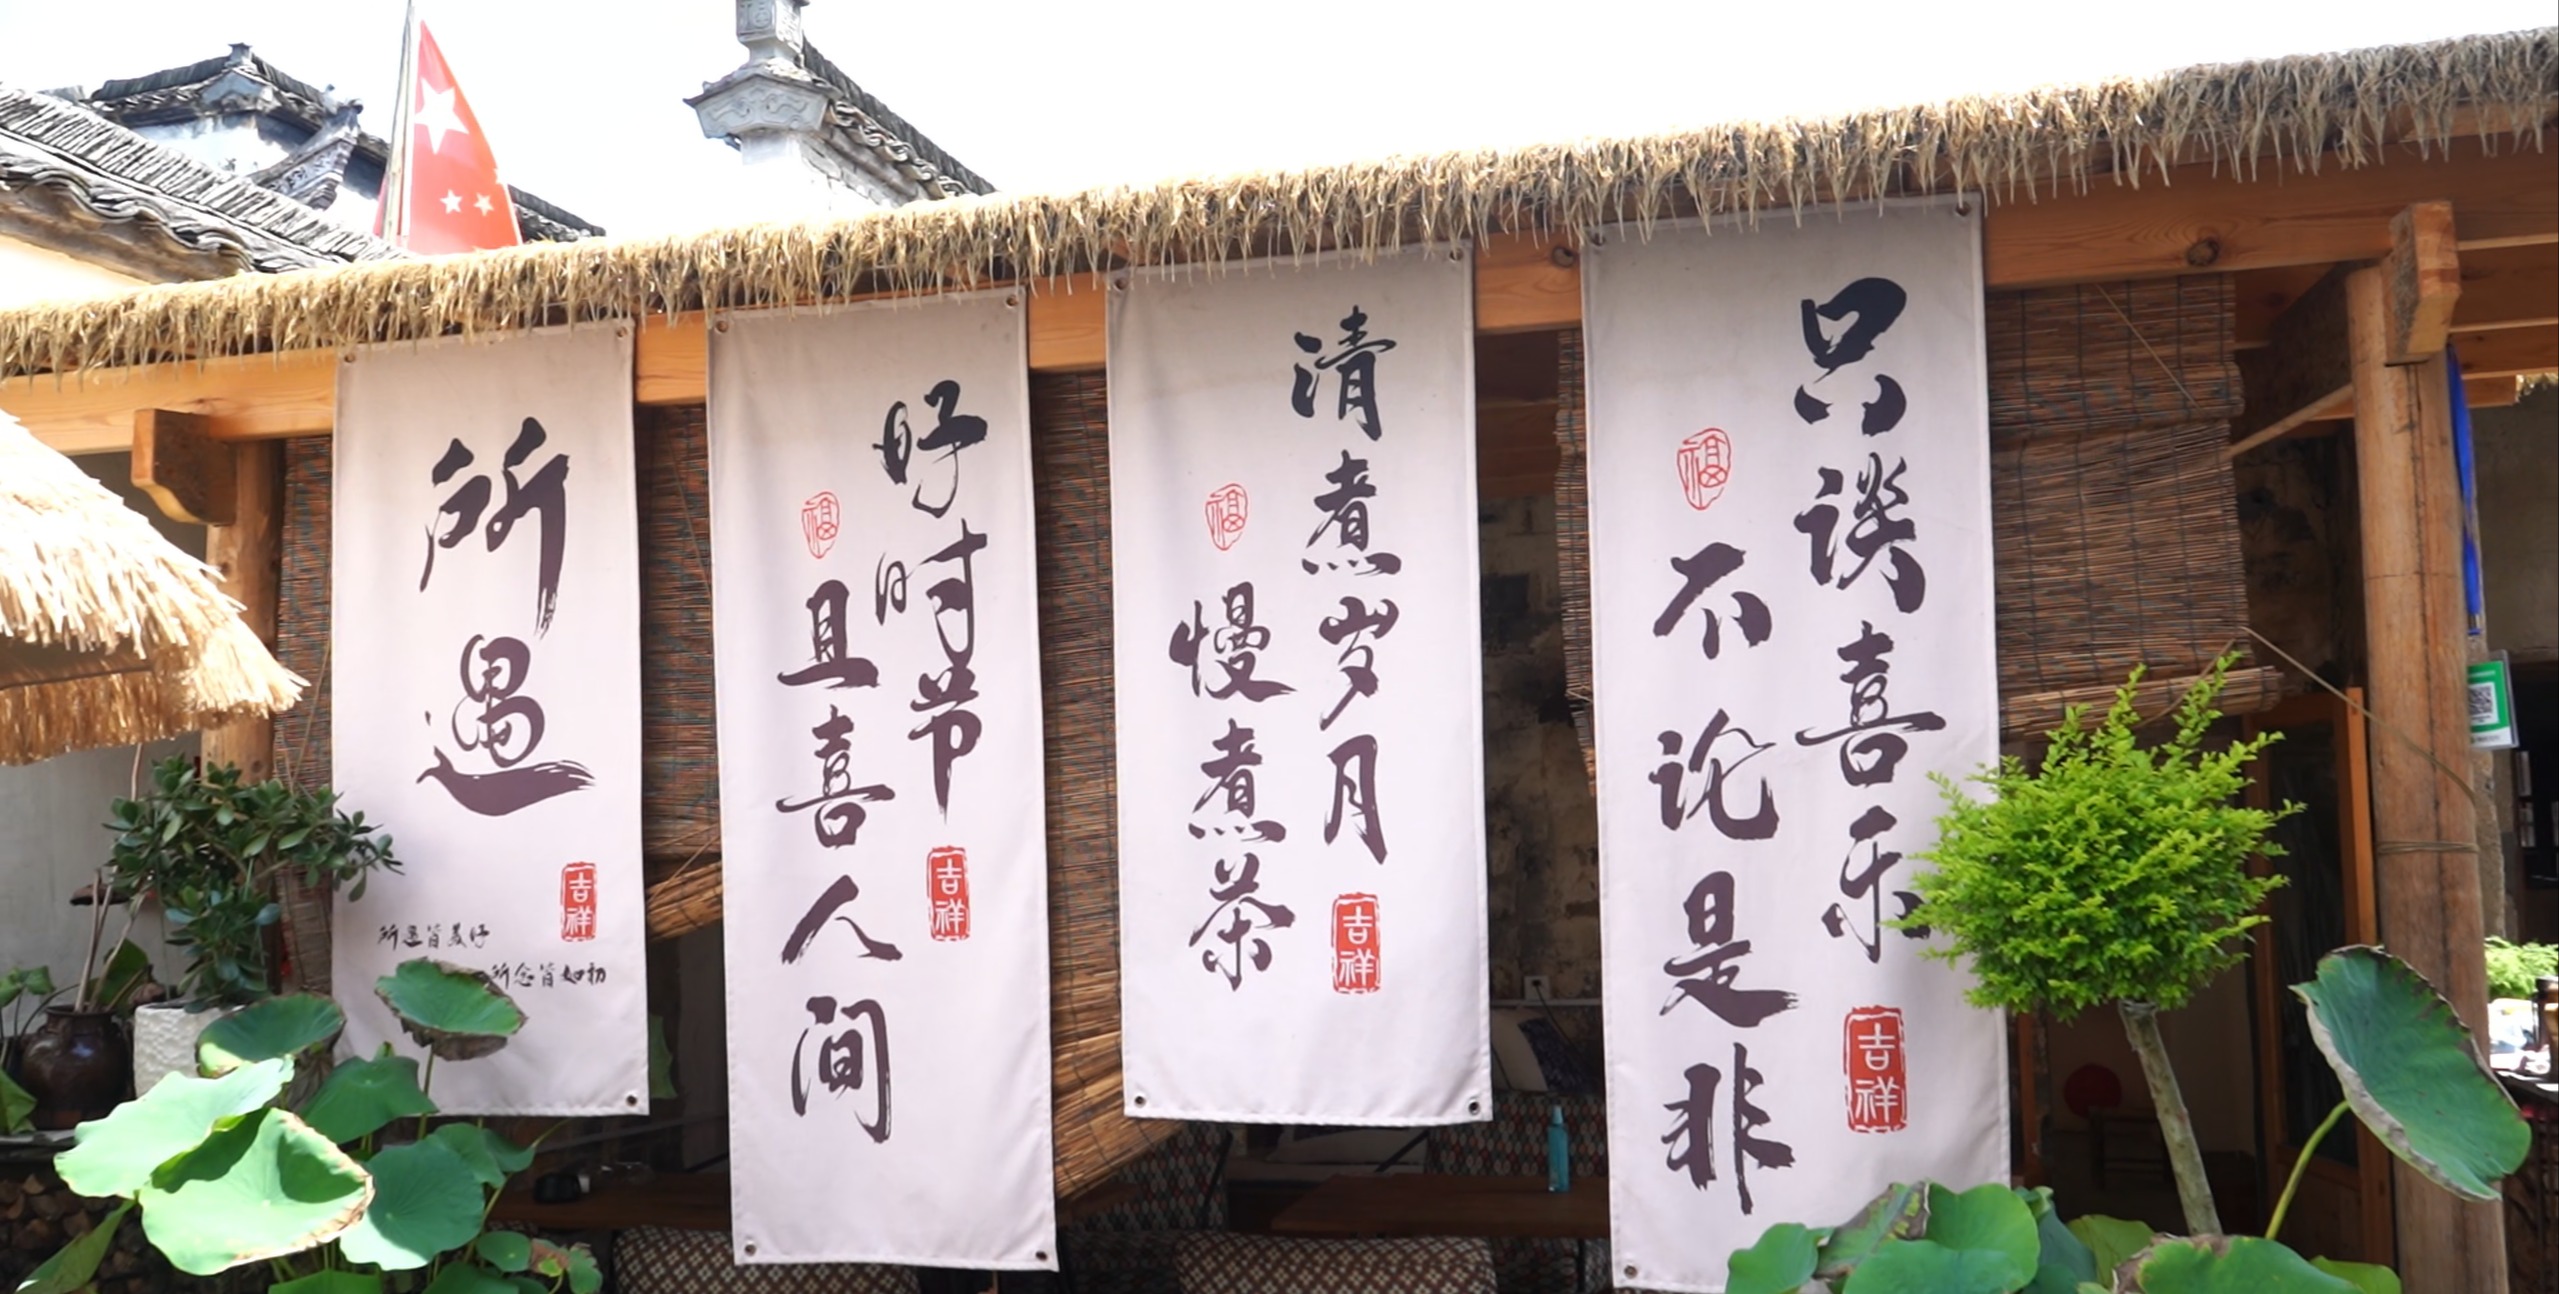 只谈喜乐
福
不论是非
吉祥
清煮岁月
福
慢煮茶
吉祥
好时节
福
且喜人间
吉祥
所遇
吉祥
所遇皆美好
所念皆如初
福